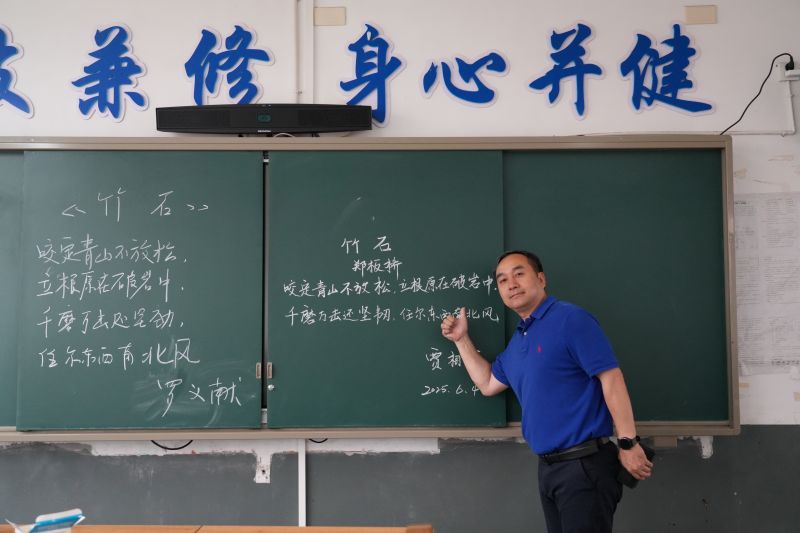 兼修 身心并健
《竹石》
咬定青山不放松,
立根原在破岩中.
千磨万击还坚劲,
任尔东西南北风
罗文献
竹石
郑板桥
咬定青山不放松,立根原在破岩中.
千磨万击还坚韧,任尔东西南北风
贾相
2025.6.4